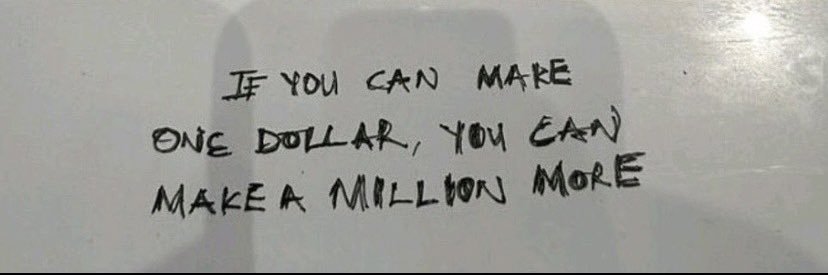 IF YOU CAN MAKE
ONE DOLLAR, YOU CAN
MAKE A MILLION MORE